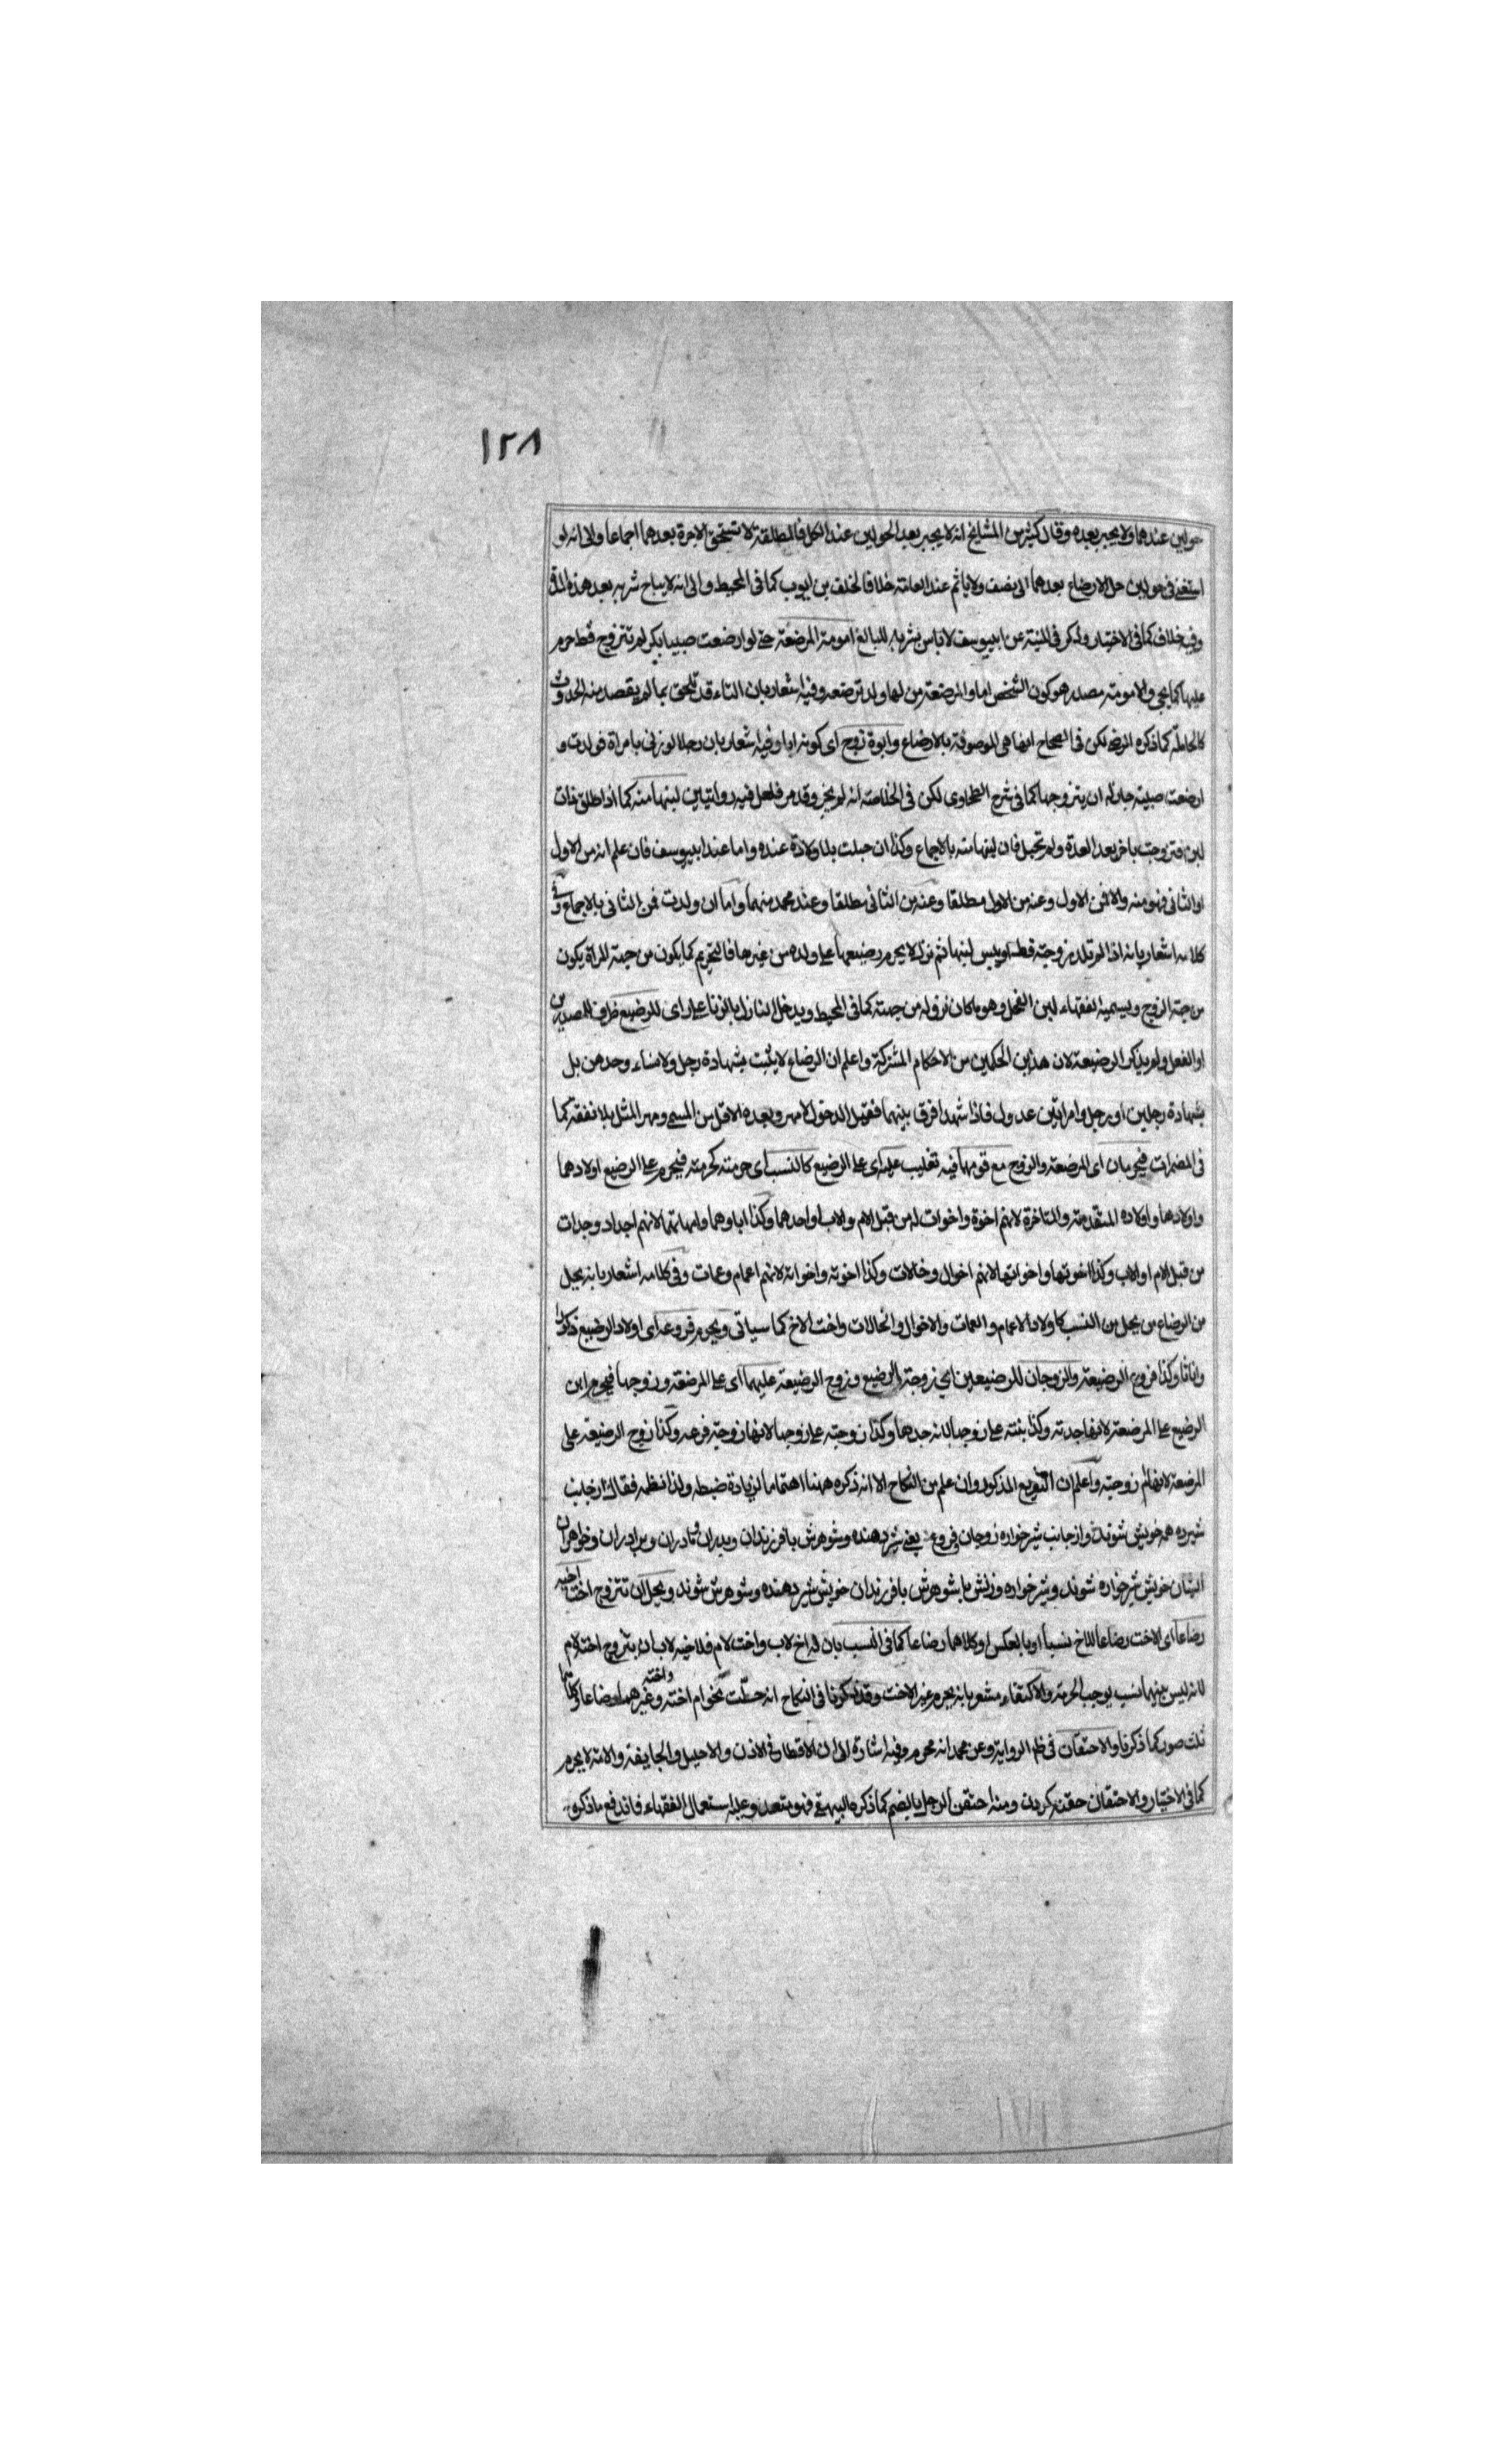 ١٢٨
حولين عندهما ولا يجبر بعده وقال كثير من المشايخ انه لا يجبر بعد الحولين عند الكل فالمطلقة لا تستحق الاجرة بعدهما اجماعا والى انه لو
استغنى فى حولين حل الارضاع بعدهما الى نصف ولا ياثم عند العامة خلافا لخلف بن ايوب كما فى المحيط والى انه لا يباح شربه بعد هذه المدة
وفيه خلاف كما فى الاختيار وذكر فى المنية عن ابيوسف لا باس بشربه للبالغ امومة المرضعة حتى لو ارضعت صبيا بكر لم تتزوج قط حرم
عليها كما يجئ والامومة مصدر هو كون الشخص اما والمرضعة من لها ولد ترضعه وفيه اشعار بان التاء قد تلحق بما لم يقصد منه الحدوث
كالحاملة كما ذكره الرضى لكن فى الصحاح انها هى الموصوفة بالارضاع وابوة زوج اى كونه ابا وفيه اشعار بان رجلا لو زنى بامراة فولدت و
ارضعت صبية جاز له ان يتزوجها كما فى شرح الطحاوى لكن فى الخلاصة انه لم يجز وقد مر فلعل فيه روايتين لبنها منه كما اذا طلق ذات
لبن فتزوجت باخر بعد العدة ولم تحبل فان لبنها منه بالاجماع وكذا ان حبلت بلا ولادة عنده واما عند ابيوسف فان علم انه من الاول
او الثانى فهو منه والا فمن الاول وعنه من الاول مطلقا وعنه من الثانى مطلقا وعند محمد منهما واما ان ولدت فمن الثانى بالاجماع وفى
كلامه اشعار بانه اذا لم تلد من زوجته قط او يبس لبنها ثم نزل لا يحرم رضيعها على ولده من غيرها فالتحريم كما يكون من جهة المراة يكون
من جهة الزوج ويسميه الفقهاء لبن الفحل وهو ما كان نزوله من جهته كما فى المحيط ويدخل النازل بالزنا على راى للرضيع ظرف المصدرين
او الفعل ولم يذكر الرضيعة لان هذين الحكمين من الاحكام المشتركة واعلم ان الرضاع لا يثبت بشهادة رجل ولا نساء وحدهن بل
بشهادة رجلين او رجل وامراتين عدول فاذا شهدا فرق بينهما فقبل الدخول لا مهر وبعده الاقل من المسمى ومهر المثل بلا نفقة كما
فى المضمرات فيحرمان اى المرضعة والزوج مع قومهما فيه تغليب عليه اى على الرضيع كالنسب اى حرمته كحرمته فيحرم على الرضيع اولادهما
واولادها واولاده المتقدمة والمتاخرة لانهم اخوة واخوات له من قبل الام والاب او احدهما وكذا اباوهما وامهاتهما لانهم اجداد وجدات
من قبل الام او الاب وكذا اخوتها واخواتها لانهم اخوال وخالات وكذا اخوته واخواته لانهم اعمام وعمات وفى كلامه اشعار بانه يحل
من الرضاع من يحل من النسب كاولاد الاعمام والعمات والاخوال والخالات واخت الاخ كما سياتى ويحرم فروعه اى اولاد الرضيع ذكورا
واناثا وكذا فروع الرضيعة والزوجان للرضيعين اى زوجة الرضيع وزوج الرضيعة عليهما اى على المرضعة وزوجها فيحرم ابن
الرضيع على المرضعة لانها جدته وكذا بنته على زوجها لانه جدها وكذا زوجته على زوجها لانها زوجة فرعه وكذا زوج الرضيعة على
المرضعة لانها ام زوجته واعلم ان التفريع المذكور وان علم من النكاح الا انه ذكره ههنا اهتماما لزيادة ضبطه ولذا نظمه فقال از جانب
شيرده همه خويش شوند واز جانب شيرخواره زوجان وفروع يعنى شير دهنده وشوهرش با فرزندان وپدران ومادران وبرادران وخواهران
ايشان خويش شيرخواره شوند وشيرخواره وزنش يا شوهرش با فرزندان خويش شير دهنده وشوهرش شوند ويحل ان تتزوج اخت اخيه
رضاعا اى الاخت رضاعا للاخ نسبا او بالعكس او كلاهما رضاعا كما فى النسب بان له اخ لاب واخت لام فلاخيه لاب ان يتزوج اخته لام
لانه ليس بينهما نسب يوجب الحرمة والاكتفاء مشعر بانه يحرم غير الاخت وقد ذكرنا فى النكاح انه حلت نحو ام اخته واخته وغيرهما رضاعا وكلتاهما
ثلث صور كما ذكرنا والاحتقان فى ظم الرواية وعن محمد انه محرم وفيه اشارة الى ان الاقطار فى الاذن والاحليل والجايفة والامة لا يحرم
كما فى الاختيار والاحتقان حقنه كردن ومنه احتقن الرجل بالضم كما ذكره البيهقى فهو متعد وعليه استعمال الفقهاء فاندفع ما ذكره